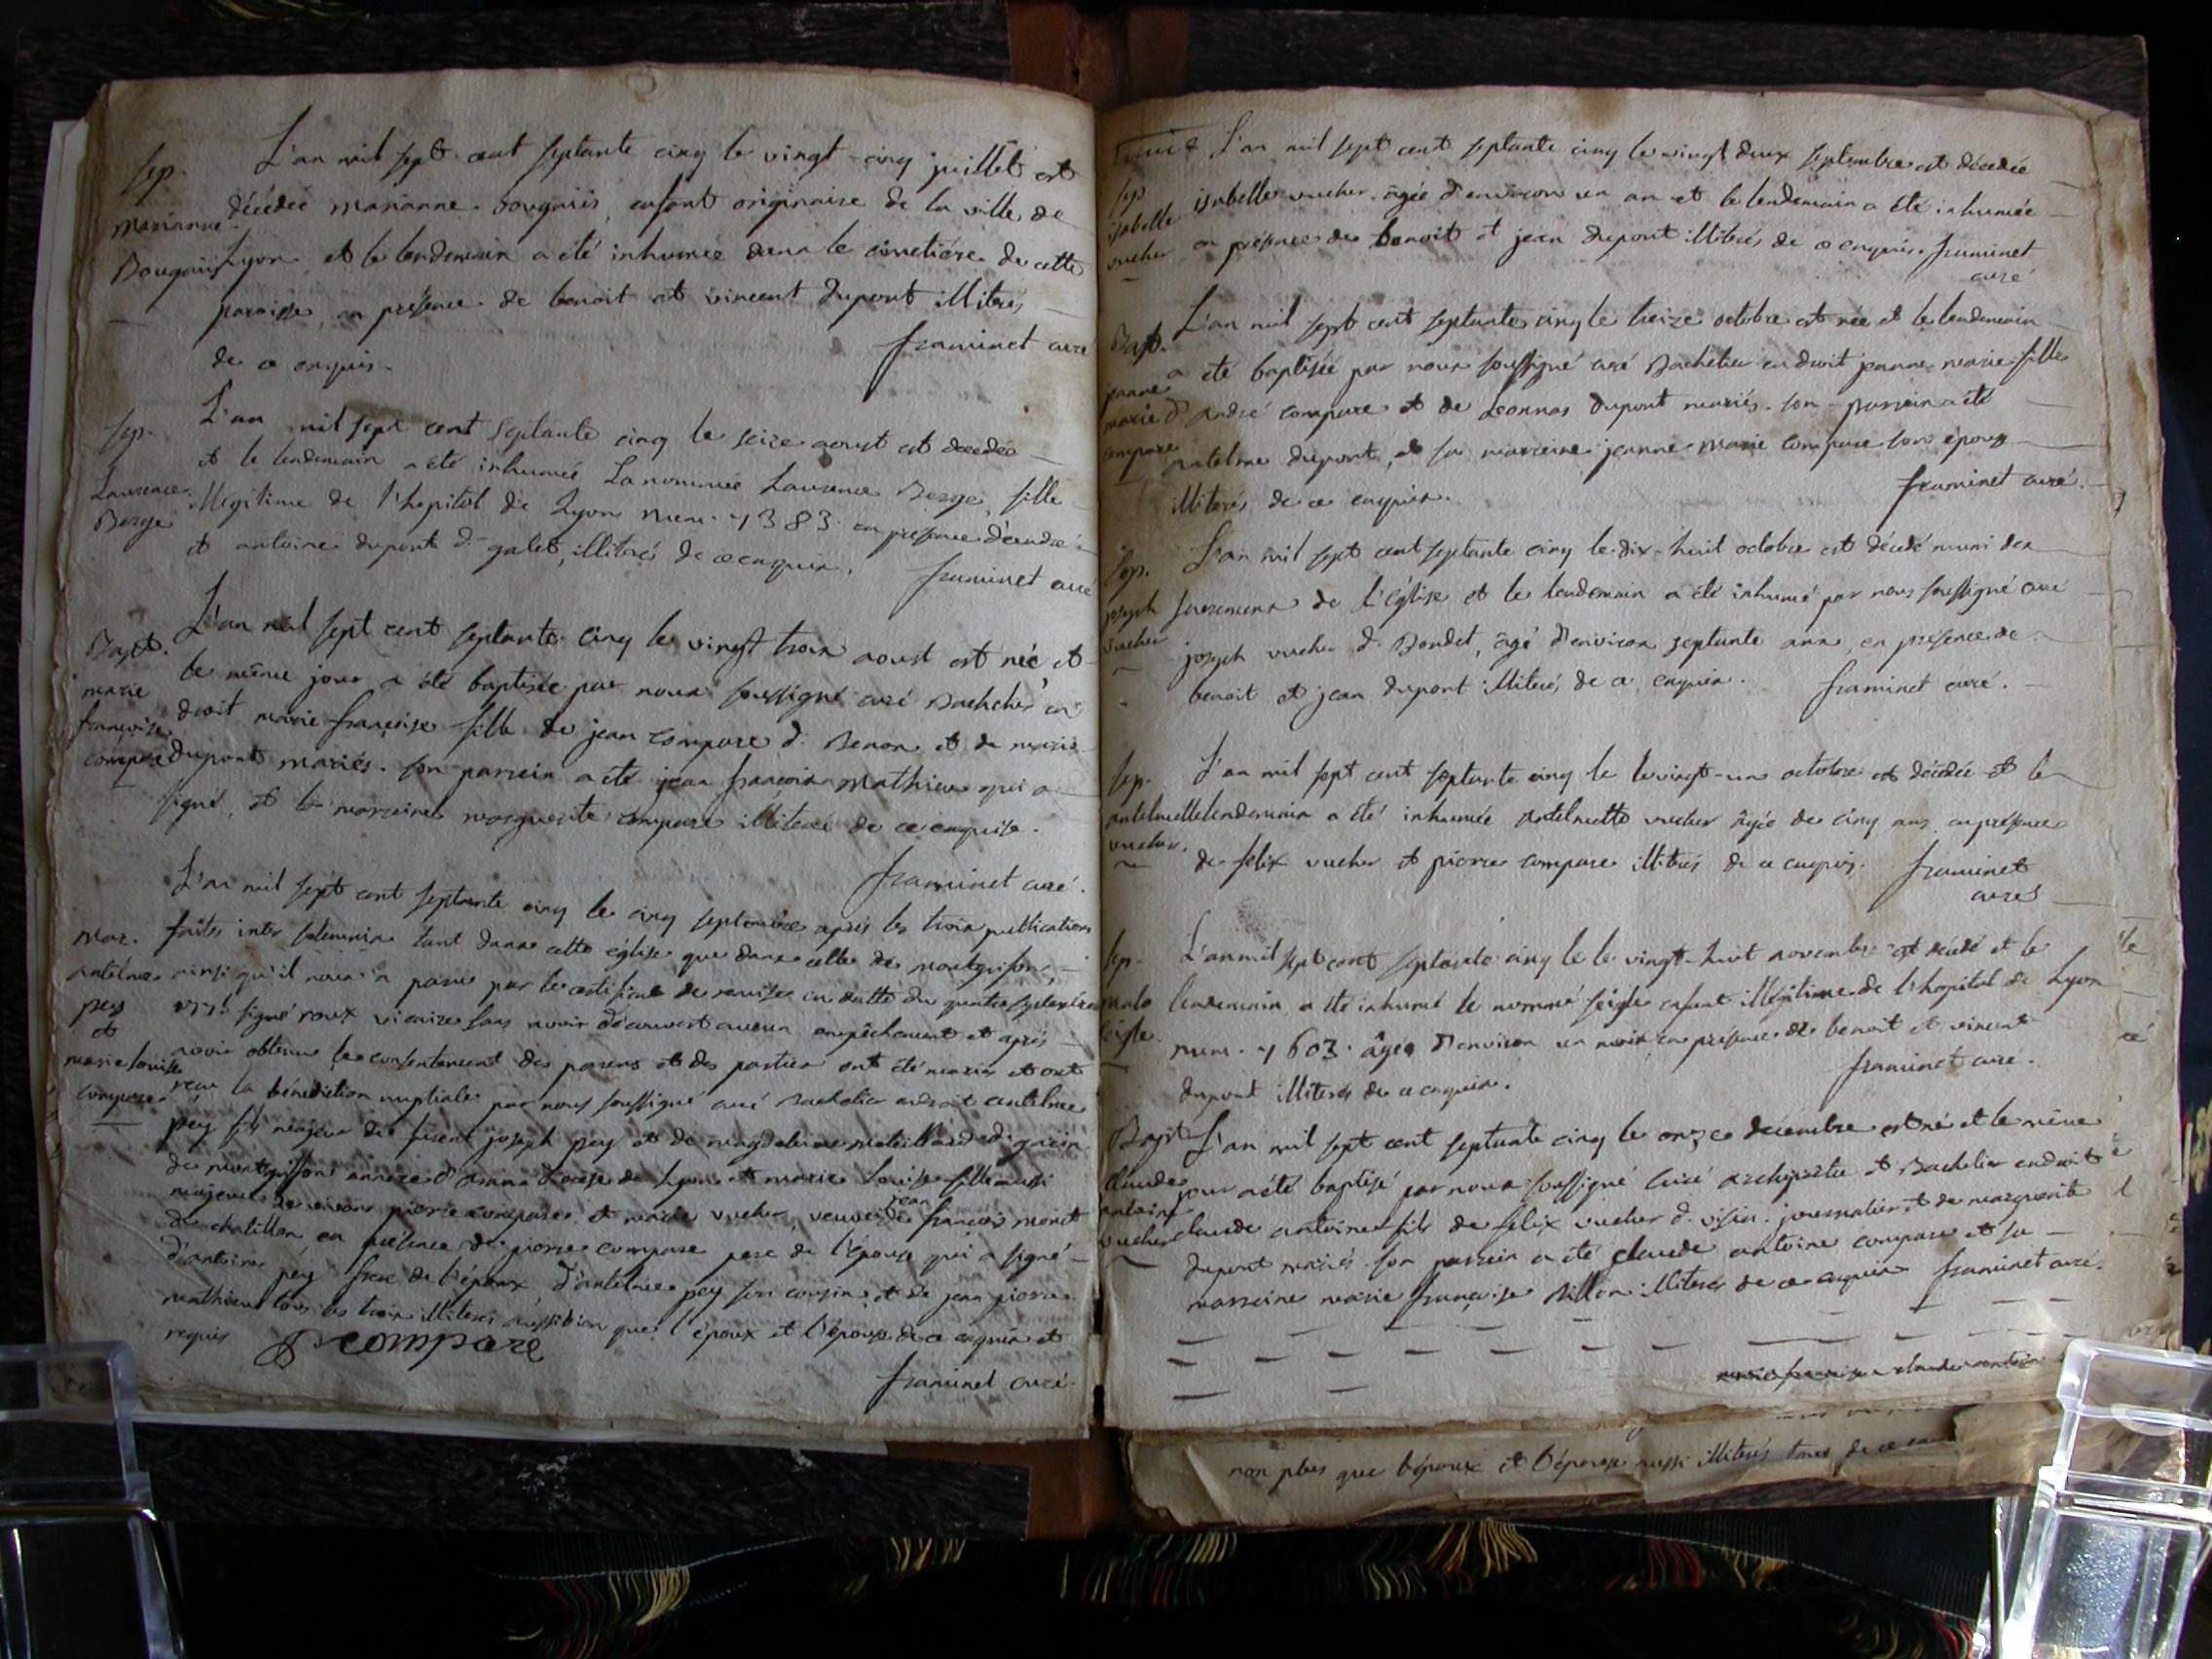 L'an mil sept cent septante cinq le vingt-cinq juillet est
sep. décédée marianne enfant originaire de la ville de
marianne Lyon, et le lendemain a été inhumée dans le cimetiére de cette
paroisse, en présence de benoit et vincent dupont illiterés
de ce enquis. framinet curé
sep. L'an mil sept cent septante cinq le seize aoust est decedée
et le lendemain a été inhumée La nommée Laurence Berge, fille
Laurence illégitime de l'hopital de Lyon num. 1383. en presence d'andré
Berge et antoine dupont d. galet, illiterés de ce enquis. framinet curé
L'an mil sept cent septante cinq le vingt trois aoust est née, et
Bapt. le même jour a été baptisée par nous soussigné curé Bachelier en
marie droit marie françoise fille de jean compare d. Benon et de marie
françoise
compare dupont mariés. son parrein a été jean françois mathieu qui a
signé, et la marreine marguerite compare illiterée de ce enquise.
framinet curé.
L'an mil sept cent septante cinq le cinq septembre après les trois publications
mar. faites inter solemnia tant dans cette église que dans celle de montgrifon,
antelme ainsi qu'il nous a parue par le certificat de remise en datte du quatre septembre
pey signé roux vicaire sans avoir découvert aucun empêchement et après
et avoir obtenu le consentement des parens et des parties ont été mariés et ont
marie louise reçu la bénédiction nuptiale par nous soussigné curé Bachelier en droit antelme
compare pey fils majeur de feu joseph pey et de magdelaine
de montgrifon annexe d' diocese de Lyon et marie Louise fille aussi
majeure de pierre compare et marie vucher, veuve de jean françois moret
de chatillon en présence de pierre compare pere de l'épouse qui a signé
d'antoine pey frere de l'époux, d'antelme pey son cousin, et de jean pierre
mathieu tous les trois illiterés aussi bien que l'époux et l'épouse de ce enquis et
requis P compare
framinet curé
L'an mil sept cent septante cinq le vingt deux septembre est décédée
sep isabelle vucher âgée d'environ un an et le lendemain a été inhumée
isabelle
vucher en présence de benoit et jean dupont illiterés de ce enquis. framinet
curé
L'an mil sept cent septante cinq le treize octobre est née et le lendemain
Bapt. a été baptisée par nous soussigné curé Bachelier en droit jeanne marie fille
jeanne
marie d'André compare et de Leonnas dupont mariés. son parrein a été
compare antelme dupont, et sa marreine jeanne marie compare son épouse
illiterés de ce enquis. framinet curé.
L'an mil sept cent septante cinq le dix-huit octobre est décédé muni des
sep. sacremens de l'église et le lendemain a été inhumé par nous soussigné curé
joseph
vucher joseph vucher d. Bondet, âgé d'environ septante ans, en presence de
benoit et jean dupont illiterés de ce enquis. framinet curé.
sep. L'an mil sept cent septante cinq le le vingt-un octobre est décédée et le
antelmette lendemain a été inhumée Antelmette vucher âgée de cinq ans en présence
vucher. de felix vucher et pierre compare illiterés de ce enquis. framinet
curé
sep. L'an mil sept cent septante cinq le le vingt-huit novembre est décédé et le
lendemain a été inhumé le nommé seigle enfant illégitime de l'hopital de Lyon
num. 1603. âgé d'environ un mois en présence de benoit et vincent
dupont illiterés de ce enquis. framinet curé.
Bapt L'an mil sept cent septante cinq le onze decembre est né et le même
claude jour a été baptisé par nous soussigné Curé archiprêtre et Bachelier en droit
antoine
vucher claude antoine fils de felix vucher d. journalier et de marguerite
dupont mariés. son parrein a été claude antoine compare et sa
marreine marie françoise Billon illiterés de ce enquis framinet curé.
non plus que l'époux et l'épouse aussi illiterés tous de ce